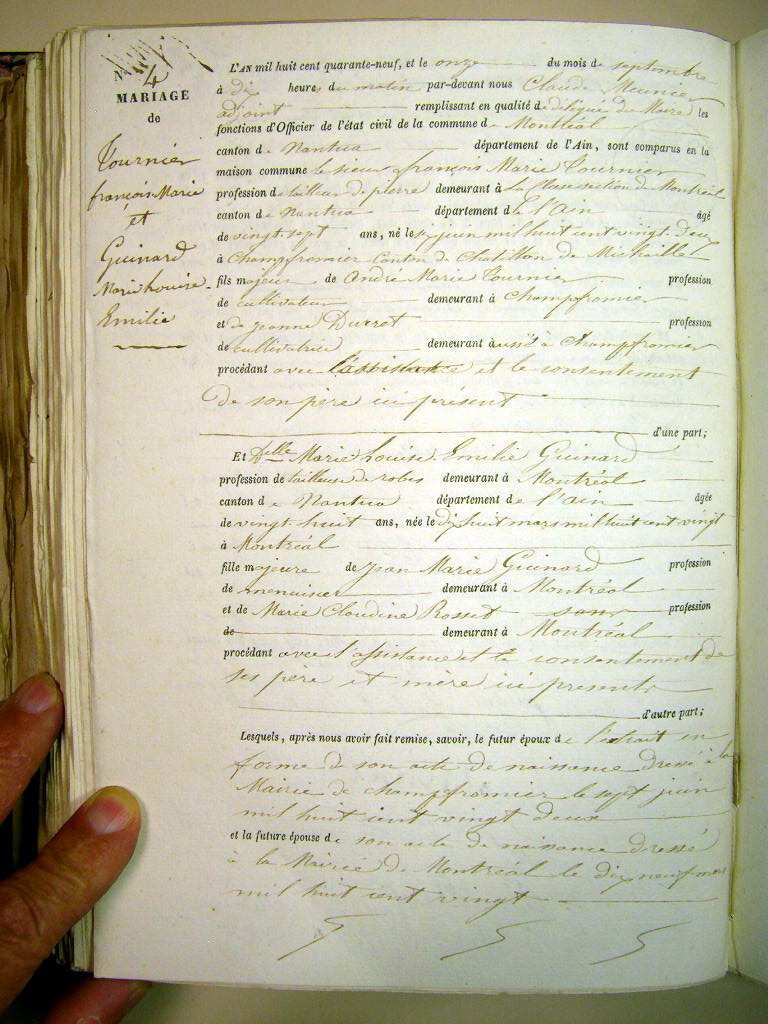 N° 4
MARIAGE
de
Tournier
françois Marie
et
Guinard
Marie Louise
Emilie
L'AN mil huit cent quarante-neuf, et le onze du mois de septembre
à dix heures du matin par-devant nous Claude Meunier
adjoint remplissant en qualité de délégué du Maire les
fonctions d'Officier de l'état civil de la commune de Montréal
canton de Nantua département de l'Ain, sont comparus en la
maison commune le sieur françois Marie Tournier
profession de tailleur de pierre demeurant à la section de Montréal
canton de Nantua département de l'ain âgé
de vingt-sept ans, né le sept juin mil huit cent vingt-deux
à Champfromier Canton de Chatillon de Michaille
fils majeur de André Marie Tournier profession
de cultivateur demeurant à Champfromier
et de jeanne Ducret profession
de cultivatrice demeurant à aussi à Champfromier
procédant avec l'assistance et le consentement
de son père ici présent
d'une part;
Et Dlle Marie Louise Emilie Guinard
profession de tailleuse de robes demeurant à Montréal
canton de Nantua département de l'ain âgée
de vingt-huit ans, née le dix huit mars mil huit cent vingt
à Montréal
fille majeure de Jean Marie Guinard profession
de menuisier demeurant à Montréal
et de Marie Claudine Rosset sans profession
de demeurant à Montréal
procédant avec l'assistance et le consentement de
ses père et mère ici présents
d'autre part;
Lesquels, après nous avoir fait remise, savoir, le futur époux de l'extrait en
forme de son acte de naissance dressé à la
Mairie de champfromier le sept juin
mil huit cent vingt deux
et la future épouse de son acte de naissance dressé
à la Mairie de Montréal le dix neuf mars
mil huit cent vingt